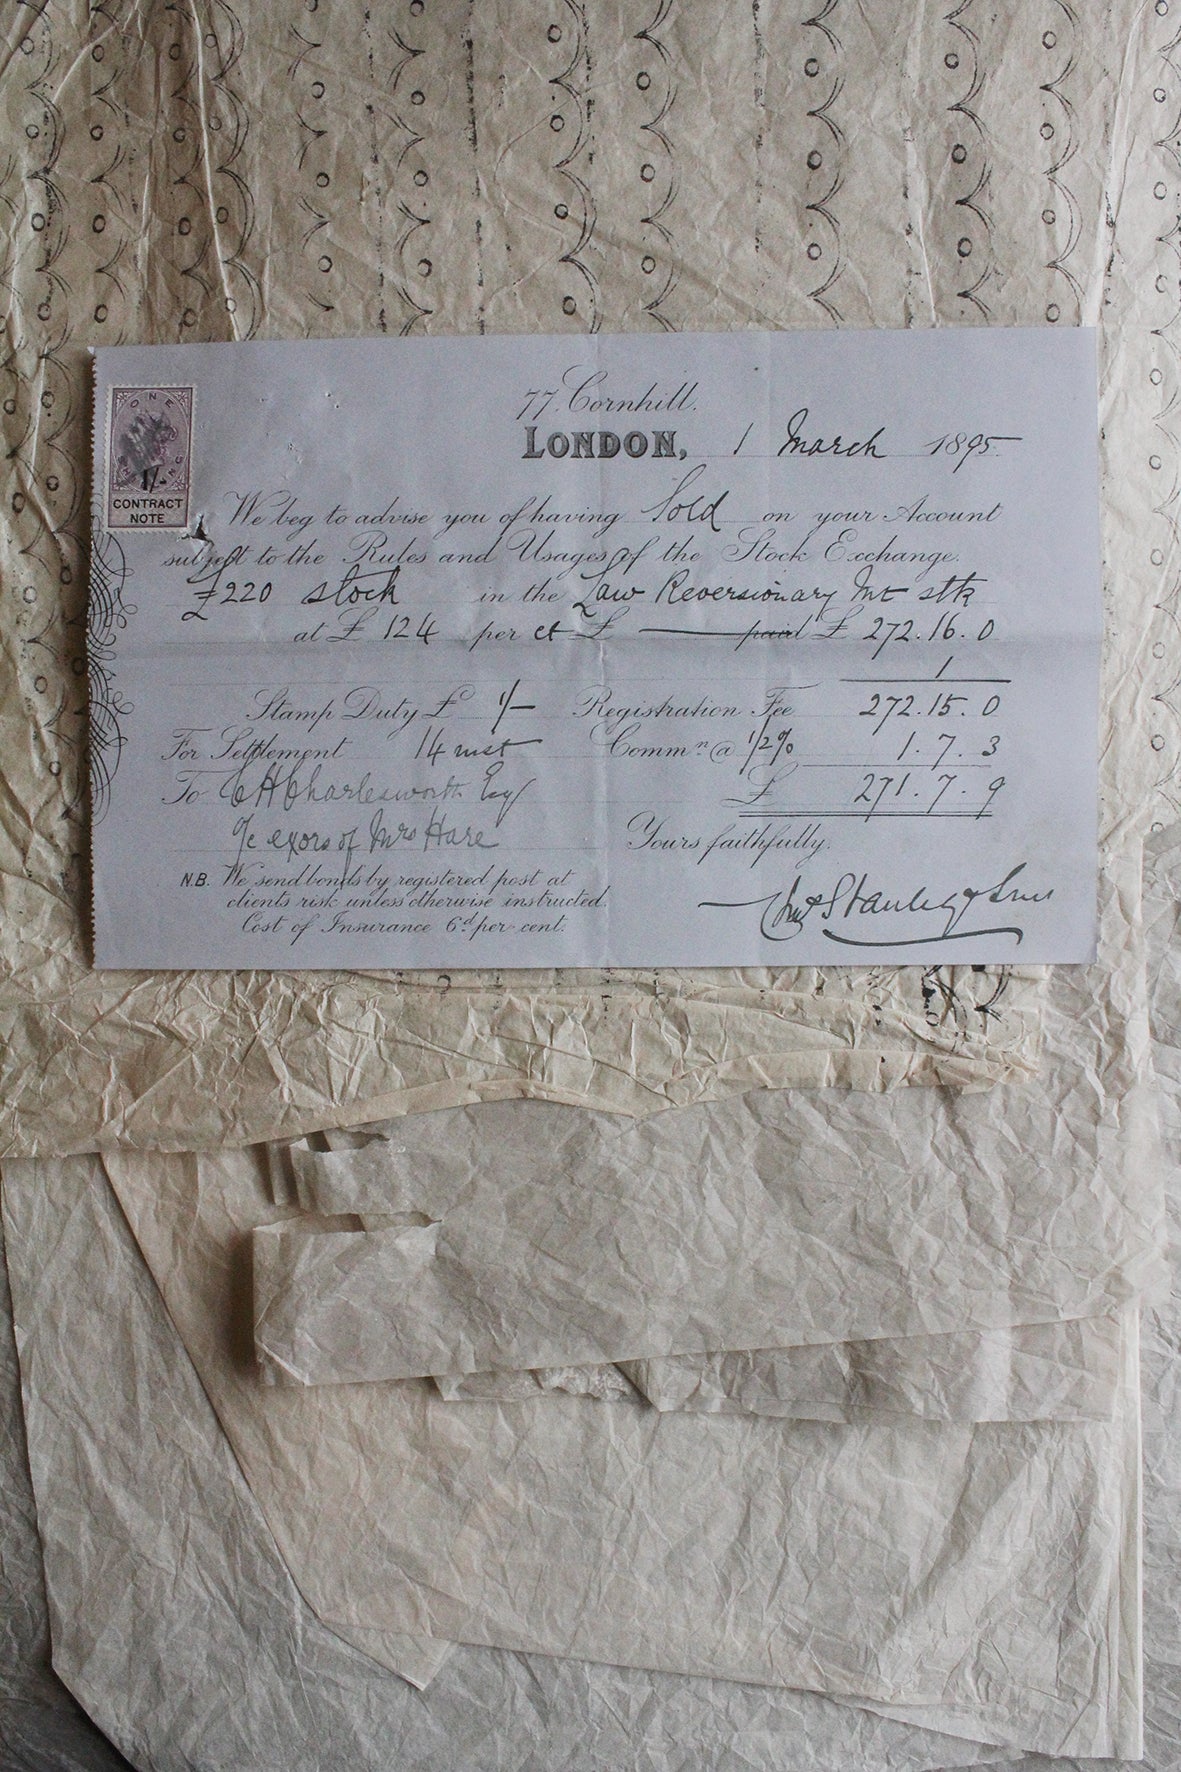 77. Cornhill.
LONDON, 1 March 1895
ONE
1/-
CONTRACT
NOTE
We beg to advise you of having Sold on your Account
subject to the Rules and Usages of the Stock Exchange.
£220 stock in the Law Reversionary Int stk
at £ 124 per ct £ paid £ 272.16.0
1
Stamp Duty £ 1/- Registration Fee 272.15.0
For Settlement 14 inst Commn @ 1/2% 1.7.3
To C H Charlesworth Esq £ 271.7.9
a/c exors of Mrs Hare
Yours faithfully.
N.B. We send bonds by registered post at
clients risk unless otherwise instructed.
Cost of Insurance 6d per cent.
Stanley & Sons